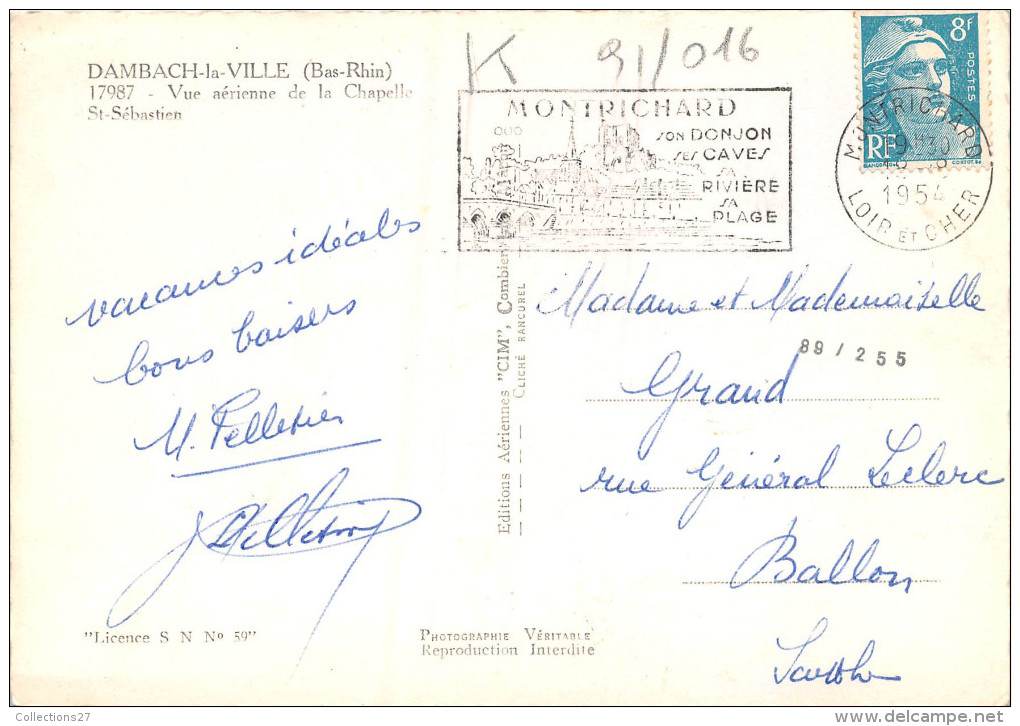 DAMBACH-la-VILLE (Bas-Rhin)
17987 - Vue aérienne de la Chapelle
St-Sébastien
K 91/016
MONTRICHARD
SON DONJON
SES CAVES
SA
RIVIÈRE
SA
PLAGE
8F
POSTES
RF
MONTRICHARD
1954
LOIR ET CHER
vacances idéales
bons baisers
M. Pelletier
Editions Aériennes "CIM", Combier
CLICHÉ RANCUREL
Madame et Mademoiselle
89/255
Grand
rue Général Leclerc
Ballon
Sarthe
"Licence S N No 59"
PHOTOGRAPHIE VÉRITABLE
Reproduction Interdite
Collections27
www.delcampe.net